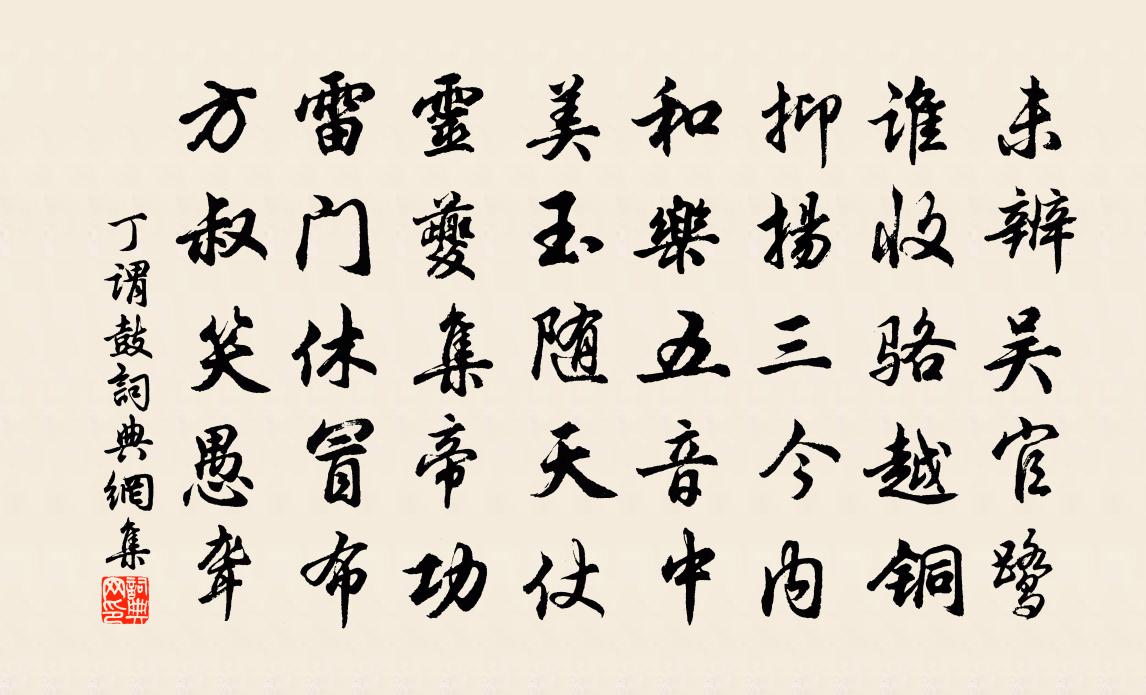 未辨吴官鹭
谁收骆越铜
抑揚三令内
和樂五音中
美玉随天仗
靈夔集帝功
雷门休冒布
方叔笑愚聋
丁谓鼓詞典網集
詞典网印